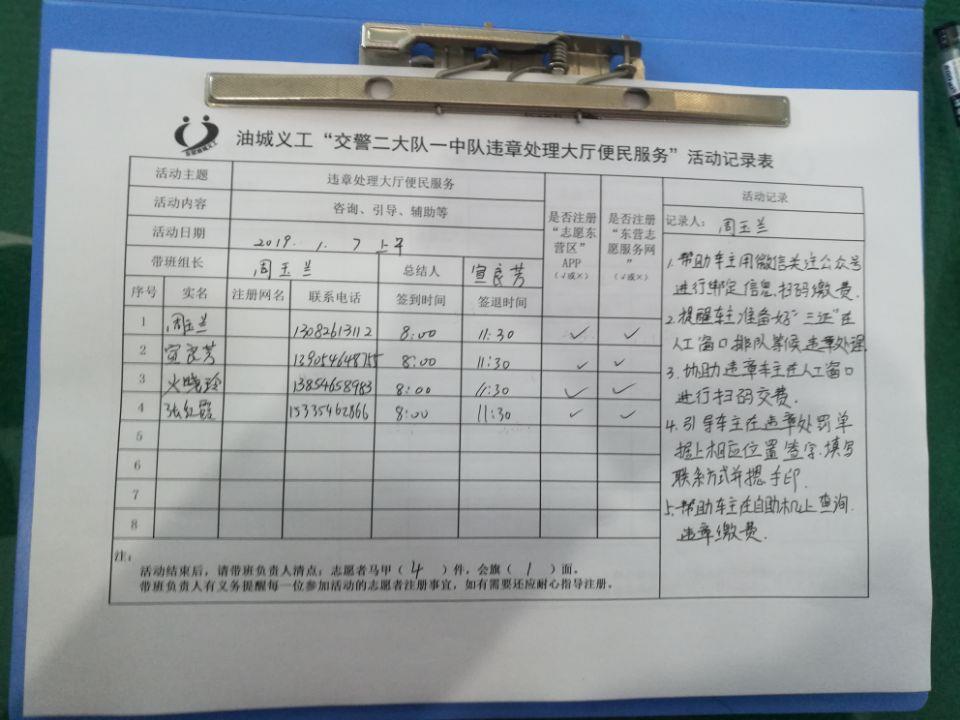 油城义工“交警二大队一中队违章处理大厅便民服务”活动记录表
活动主题 违章处理大厅便民服务
活动内容 咨询、引导、辅助等
活动日期 2019. 1. 7 上午
带班组长 周玉兰 总结人 宣良芳
是否注册“志愿东营区”APP（√或×）
是否注册“东营志愿服务网”（√或×）
序号 实名 注册网名 联系电话 签到时间 签退时间
1 周玉兰 13082613112 8:00 11:30 ✓ ✓
2 宣良芳 13905464875 8:00 11:30 ✓ ✓
3 火晓玲 13854658983 8:00 11:30 ✓ ✓
4 张红霞 15335462866 8:00 11:30 ✓ ✓
5
6
7
8
活动记录
记录人: 周玉兰
1.帮助车主用微信关注公众号
进行绑定信息,扫码缴费.
2.提醒车主准备好“三证”在
人工窗口排队等候违章处理
3.协助违章车主在人工窗口
进行扫码交费.
4.引导车主在违章处罚单
据上相应位置签字.填写
联系方式并摁手印.
5.帮助车主在自助机上查询.
违章缴费.
注:
活动结束后，请带班负责人清点：志愿者马甲（ 4 ）件，会旗（ 1 ）面。
带班负责人有义务提醒每一位参加活动的志愿者注册事宜，如有需要还应耐心指导注册。